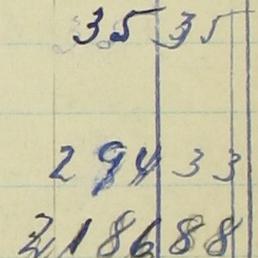 35 35
294 33
2186 88